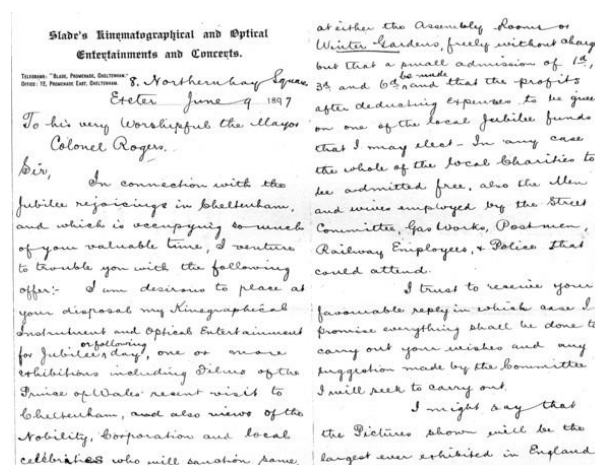 Slade's Kinematographical and Optical
Entertainments and Concerts.
TELEGRAMS: "SLADE, PROMENADE, CHELTENHAM."
OFFICE: 12, PROMENADE EAST, CHELTENHAM.
8, Northernhay Square,
Exeter June 9 1897
To his very Worshipful the Mayor
Colonel Rogers.
Sir,
In connection with the
Jubilee rejoicings in Cheltenham,
and which is occupying so much
of your valuable time, I venture
to trouble you with the following
offer:- I am desirous to place at
your disposal my Kinegraphical
Instrument and Optical Entertainment
or following
for Jubilee day, one or more
exhibitions including Films of the
Prince of Wales' resent visit to
Cheltenham, and also views of the
Nobility, Corporation and local
celebrities who will sanction same,
at either the Assembly Rooms or
Winter Gardens, freely without charge
but that a small admission of 1d,
be made
3d and 6d and that the profits
after deducting expenses to be given
on one of the local Jubilee funds
that I may elect - In any case
the whole of the local Charities to
be admitted free, also the Men
and wives employed by the Street
Committee, Gas Works, Postmen,
Railway Employees, & Police that
could attend.
I trust to receive your
favourable reply in which case I
promise everything shall be done to
carry out your wishes and any
suggestion made by the Committee
I will seek to carry out.
I might say that
the Pictures shown will be the
largest ever exhibited in England